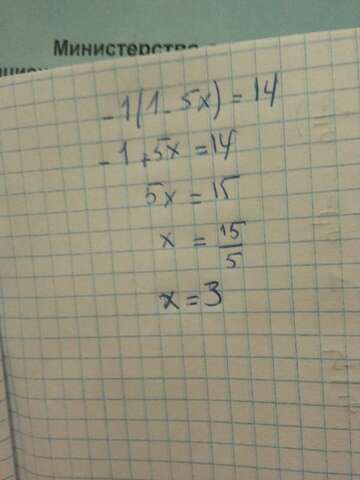 Министерство
-1(1-5x)=14
-1+5x=14
5x=15
x=15/5
x=3